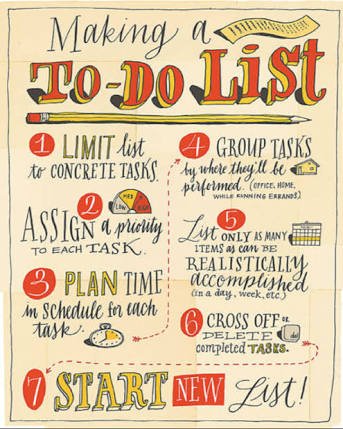 Making a
TO-DO LIST
1 LIMIT list
to CONCRETE TASKS.
2
LOW MED HIGH
ASSIGN a priority
TO EACH TASK.
3 PLAN TIME
in SCHEDULE for each
task.
4 GROUP TASKS
by where they'll be
performed. (OFFICE, HOME,
WHILE RUNNING ERRANDS)
5
List ONLY AS MANY
ITEMS as CAN BE
REALISTICALLY
accomplished
(in a day, week, etc.)
6 CROSS OFF or
DELETE
completed TASKS.
7 START NEW List!